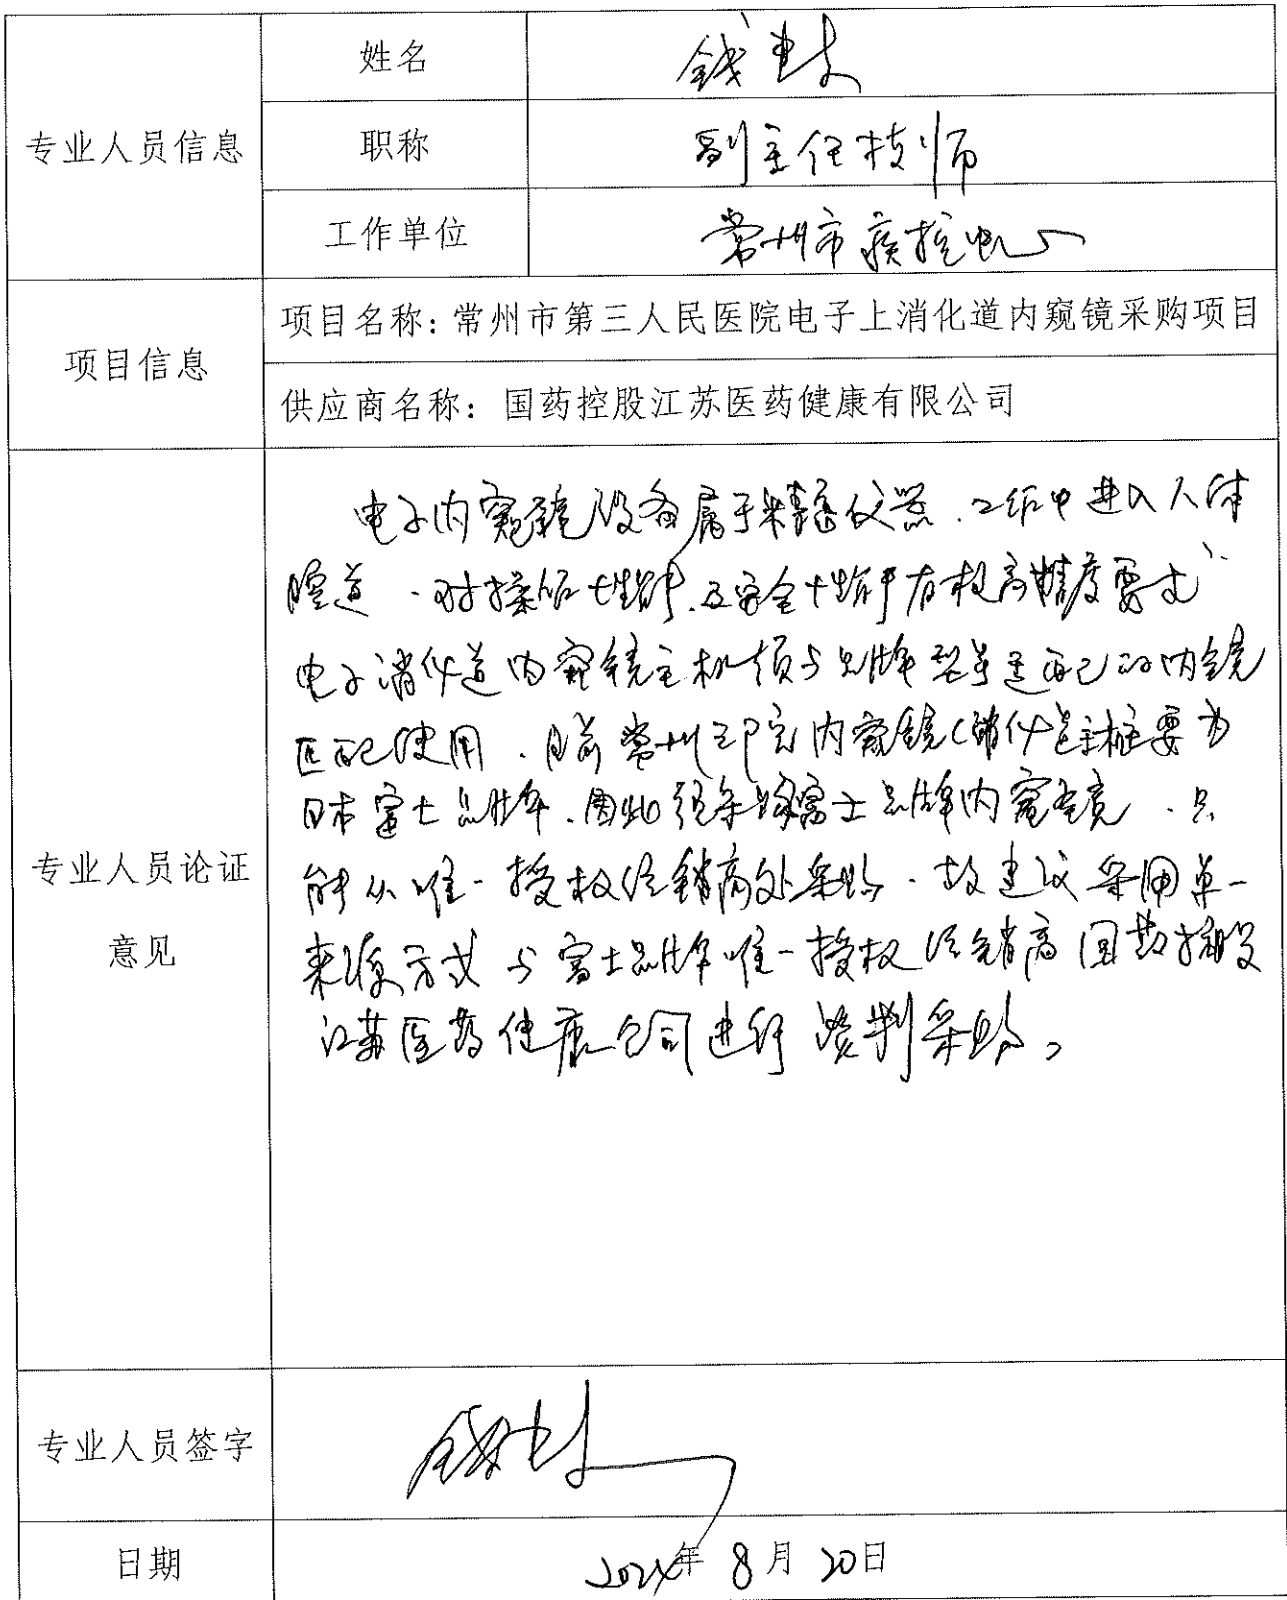 专业人员信息
姓名
钱
职称
副主任技师
工作单位
常州市疾控中心
项目信息
项目名称：常州市第三人民医院电子上消化道内窥镜采购项目
供应商名称：国药控股江苏医药健康有限公司
专业人员论证
意见
电子内窥镜设备属于精密仪器、工作中进入人体
腔道、对操作性能、及安全性能有极高精度要求
电子消化道内窥镜主机须与品牌型号适配的内镜
匹配使用、目前常州三院内窥镜(消化道主机主要为
日本富士品牌、因此须采购富士品牌内窥镜、只
能从唯一授权经销商处采购、故建议采用单一
来源方式与富士品牌唯一授权经销商国药控股
江苏医药健康公司进行谈判采购。
专业人员签字
钱
日期
2024年8月20日